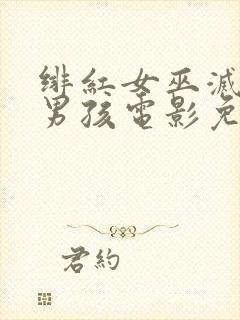 绯红女巫滅
男孩電影免
君約